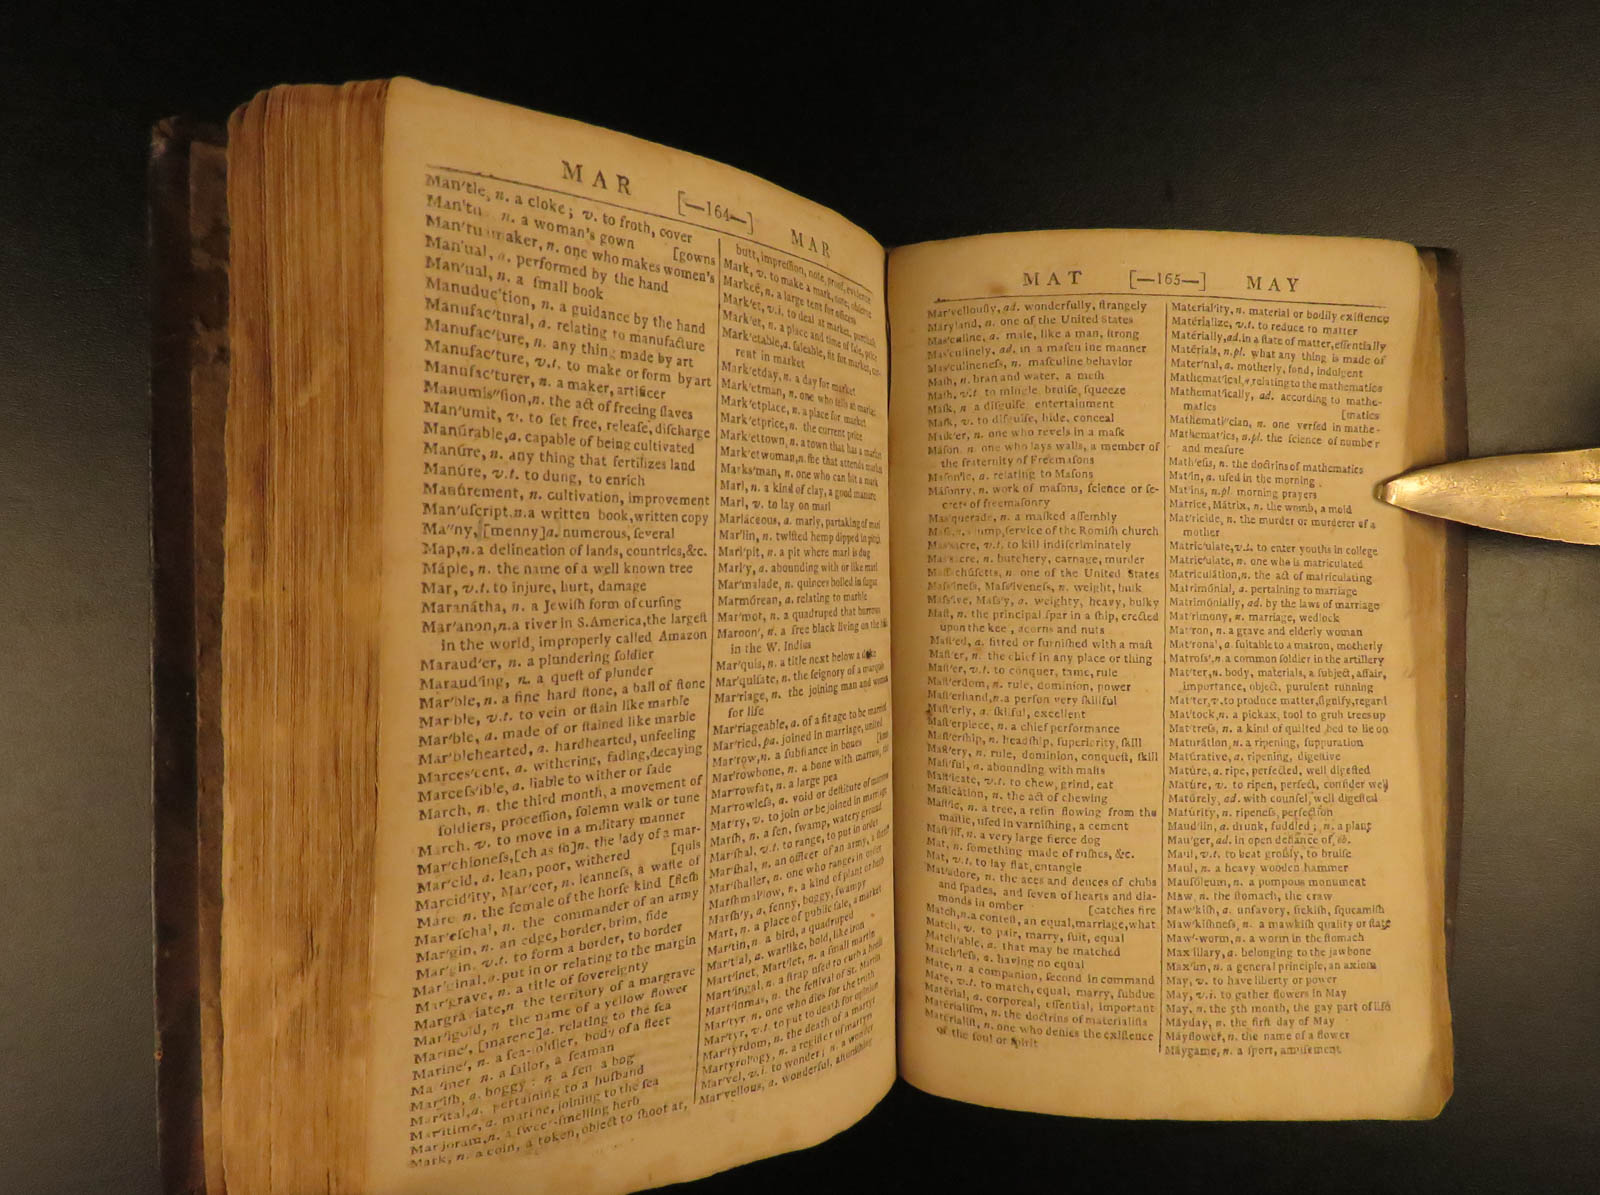 MAR [—164—] MAR
Man'tle, n. a cloke; v. to froth, cover
n. a woman's gown [gowns
maker, n. one who makes women's
Man'ual, a. performed by the hand
Man'ual, n. a ſmall book
Manuduc'tion, n. a guidance by the hand
Manufac'tural, a. relating to manufacture
Manufac'ture, n. any thing made by art
Manufac'ture, v.t. to make or form by art
Manufac'turer, n. a maker, artificer
Manumis"ſion, n. the act of freeing ſlaves
Man'umit, v. to ſet free, releaſe, diſcharge
Manūrable, a. capable of being cultivated
Manūre, n. any thing that fertilizes land
Manūre, v.t. to dung, to enrich
Manūrement, n. cultivation, improvement
Man'uſcript, n. a written book, written copy
Ma"ny, [menny] a. numerous, ſeveral
Map, n. a delineation of lands, countries, &c.
Māple, n. the name of a well known tree
Mar, v.t. to injure, hurt, damage
Maranátha, n. a Jewiſh form of curſing
Mar'anon, n. a river in S. America, the largeſt
in the world, improperly called Amazon
Maraud'er, n. a plundering ſoldier
Maraud'ing, n. a queſt of plunder
Mar'ble, n. a fine hard ſtone, a ball of ſtone
Mar'ble, v.t. to vein or ſtain like marble
Mar'ble, a. made of or ſtained like marble
Mar'blehearted, a. hardhearted, unfeeling
Marces'cent, a. withering, fading, decaying
Marceſs'ible, a. liable to wither or fade
March, n. the third month, a movement of
ſoldiers, proceſſion, ſolemn walk or tune
March, v. to move in a military manner
Mar'chioneſs, [ch as ſh] n. the lady of a mar-
Mar'cid, a. lean, poor, withered [quis
Marcid'ity, Mar'cor, n. leanneſs, a waſte of
Mare n. the female of the horſe kind [fleſh
Mar'eſchal, n. the commander of an army
Mar'gin, n. an edge, border, brim, ſide
Mar'gin, v.t. to form a border, to border
Mar'ginal, a. put in or relating to the margin
Mar'grave, n. a title of ſovereignty
Margrāviate, n. the territory of a margrave
Mar'igold, n. the name of a yellow flower
Marine', [marene] a. relating to the ſea
Marine', n. a ſea-ſoldier, body of a fleet
n. a ſailor, a ſeaman
Mar'iſh, a. boggy; n. a fen a bog
Mar'ital, a. pertaining to a huſband
Mar'itime, a. marine, joining to the ſea
Marjoram, n. a ſweet-ſmelling herb
Mark, n. a coin, a token, object to ſhoot at,
butt, impreſſion, note, proof, evidence
Mark, v. to make a mark, note, obſerve
Markeē, n. a large tent for officers
Mark'et, v.i. to deal at market,
Mark'et, n. a place and time of ſale, price
Mark'etable, a. ſaleable, fit for market, cur-
rent in market
Mark'etday, n. a day for market
Mark'etman, n. one who ſells at market
Mark'etplace, n. a place for market
Mark'etprice, n. the current price
Mark'ettown, n. a town that has a market
Mark'etwoman, n. ſhe that attends market
Marks'man, n. one who can hit a mark
Marl, n. a kind of clay, a good manure
Marl, v. to lay on marl
Marlāceous, a. marly, partaking of marl
Mar'lin, n. twiſted hemp dipped in pitch
Marl'pit, n. a pit where marl is dug
Marl'y, a. abounding with or like marl
Mar'malade, n. quinces boiled in ſugar
Marmōrean, a. relating to marble
Mar'mot, n. a quadruped that burrows
Maroon', n. a free black living on the
in the W. Indies
Mar'quis, n. a title next below a duke
Mar'quiſate, n. the ſeignory of a marquis
Mar'riage, n. the joining man and woman
for life
Mar'riageable, a. of a fit age to be married
Mar'ried, pa. joined in marriage, united
Mar'row, n. a ſubſtance in bones
Mar'rowbone, n. a bone with marrow,
Mar'rowfat, n. a large pea
Mar'rowleſs, a. void or deſtitute of marrow
Mar'ry, v. to join or be joined in marriage
Marſh, n. a fen, ſwamp, watery ground
Mar'ſhal, v.t. to range, to put in order
Mar'ſhal, n. an officer of an army,
Mar'ſhaller, n. one who ranges in order
Marſhmal'low, n. a kind of plant or herb
Marſh'y, a. fenny, boggy, ſwampy
Mart, n. a place of public ſale, a market
Mar'tin, n. a bird, a quadruped
Mar'tial, a. warlike, bold, like iron
Mart'inet, Mart'let, n. a ſmall martin
Mart'ingal, n. a ſtrap uſed to curb a horſe
Mart'inmas, n. the feſtival of St. Martin
Mar'tyr, n. one who dies for the truth
Mar'tyr, v.t. to put to death for opinion
Mar'tyrdom, n. the death of a martyr
Martyrology, n. a regiſter of martyrs
Mar'vel, v.i. to wonder; n. a wonder
Mar'vellous, a. wonderful, aſtoniſhing
MAT [—165—] MAY
Mar'vellouſly, ad. wonderfully, ſtrangely
Māryland, n. one of the United States
Mas'culine, a. male, like a man, ſtrong
Mas'culinely, ad. in a maſculine manner
Mas'culineneſs, n. maſculine behavior
Maſh, n. bran and water, a meſh
Maſh, v.t. to mingle, bruiſe, ſqueeze
Maſk, n. a diſguiſe, entertainment
Maſk, v. to diſguiſe, hide, conceal
Maſk'er, n. one who revels in a maſk
Māſon, n. one who lays walls, a member of
the fraternity of Freemaſons
Maſon'ic, a. relating to Maſons
Māſonry, n. work of maſons, ſcience or ſe-
crets of freemaſonry
Maſquerade, n. a maſked aſſembly
ſervice of the Romiſh church
Maſ'ſacre, v.t. to kill indiſcriminately
Maſ'ſacre, n. butchery, carnage, murder
Maſſachūſetts, n. one of the United States
Maſs'ineſs, Maſs'iveneſs, n. weight, bulk
Maſs'ive, Maſs'y, a. weighty, heavy, bulky
Maſt, n. the principal ſpar in a ſhip, erected
upon the keel, acorns and nuts
Maſt'ed, a. fitted or furniſhed with a maſt
Maſt'er, n. the chief in any place or thing
Maſt'er, v.t. to conquer, tame, rule
Maſt'erdom, n. rule, dominion, power
Maſt'erhand, n. a perſon very ſkillful
Maſt'erly, a. ſkilful, excellent
Maſt'erpiece, n. a chief performance
Maſt'erſhip, n. headſhip, ſuperiority, ſkill
Maſt'ery, n. rule, dominion, conqueſt, ſkill
Maſt'ful, a. abounding with maſts
Maſt'icate, v.t. to chew, grind, eat
Maſticātion, n. the act of chewing
Maſt'ic, n. a tree, a reſin flowing from the
maſtic, uſed in varniſhing, a cement
Maſt'iff, n. a very large fierce dog
Mat, n. ſomething made of ruſhes, &c.
Mat, v.t. to lay flat, entangle
Mat'adore, n. the aces and deuces of clubs
and ſpades, and ſeven of hearts and dia-
monds in omber [catches fire
Match, n. a conteſt, an equal, marriage, what
Match, v. to pair, marry, ſuit, equal
Match'able, a. that may be matched
Match'leſs, a. having no equal
Mate, n. a companion, ſecond in command
Mate, v.t. to match, equal, marry, ſubdue
Matērial, a. corporeal, eſſential, important
Matērialiſm, n. the doctrins of materialiſts
Matērialiſt, n. one who denies the exiſtence
of the ſoul or ſpirit
Material'ity, n. material or bodily exiſtence
Matērialize, v.t. to reduce to matter
Matērially, ad. in a ſtate of matter, eſſentially
Matērials, n.pl. what any thing is made of
Mater'nal, a. motherly, fond, indulgent
Mathemat'ical, a. relating to the mathematics
Mathemat'ically, ad. according to mathe-
matics [matics
Mathemati"cian, n. one verſed in mathe-
Mathemat'ics, n.pl. the ſcience of number
and meaſure
Math'eſis, n. the doctrins of mathematics
Mat'in, a. uſed in the morning
Mat'ins, n.pl. morning prayers
Matrice, Mātrix, n. the womb, a mold
Mat'ricide, n. the murder or murderer of a
mother
Matric'ulate, v.t. to enter youths in college
Matric'ulate, n. one who is matriculated
Matriculātion, n. the act of matriculating
Matrimōnial, a. pertaining to marriage
Matrimōnially, ad. by the laws of marriage
Mat'rimony, n. marriage, wedlock
Mātron, n. a grave and elderly woman
Mat'ronal, a. ſuitable to a matron, motherly
Matroſs', n. a common ſoldier in the artillery
Mat'ter, n. body, materials, a ſubject, affair,
importance, object, purulent running
Mat'ter, v. to produce matter, ſignify, regard
Mat'tock, n. a pickax, tool to grub trees up
Mat'treſs, n. a kind of quilted bed to lie on
Maturātion, n. a ripening, ſuppuration
Matūrative, a. ripening, digeſtive
Matūre, a. ripe, perfected, well digeſted
Matūre, v. to ripen, perfect, conſider well
Matūrely, ad. with counſel, well digeſted
Matūrity, n. ripeneſs, perfection
Maud'lin, a. drunk, fuddled; n. a plant
Mau'ger, ad. in open defiance of
Maul, v.t. to beat groſſly, to bruiſe
Maul, n. a heavy wooden hammer
Mauſōleum, n. a pompous monument
Maw, n. the ſtomach, the craw
Maw'kiſh, a. unſavory, ſickiſh, ſqueamiſh
Maw'kiſhneſs, n. a mawkiſh quality or ſtate
Maw'-worm, n. a worm in the ſtomach
Max'illary, a. belonging to the jawbone
Max'im, n. a general principle, an axiom
May, v. to have liberty or power
May, v.i. to gather flowers in May
May, n. the 5th month, the gay part of life
Māyday, n. the firſt day of May
Māyflower, n. the name of a flower
Māygame, n. a ſport, amuſement